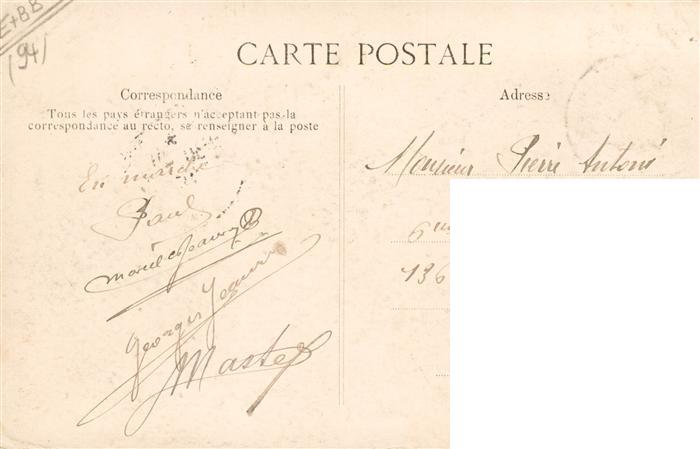 E+BB
(94)
CARTE POSTALE
Correspondance
Tous les pays étrangers n'acceptant pas la
correspondance au recto, se renseigner à la poste
Paul
Georges Jeanne
Master
Adresse
Monsieur Pierre Antoni
6
136